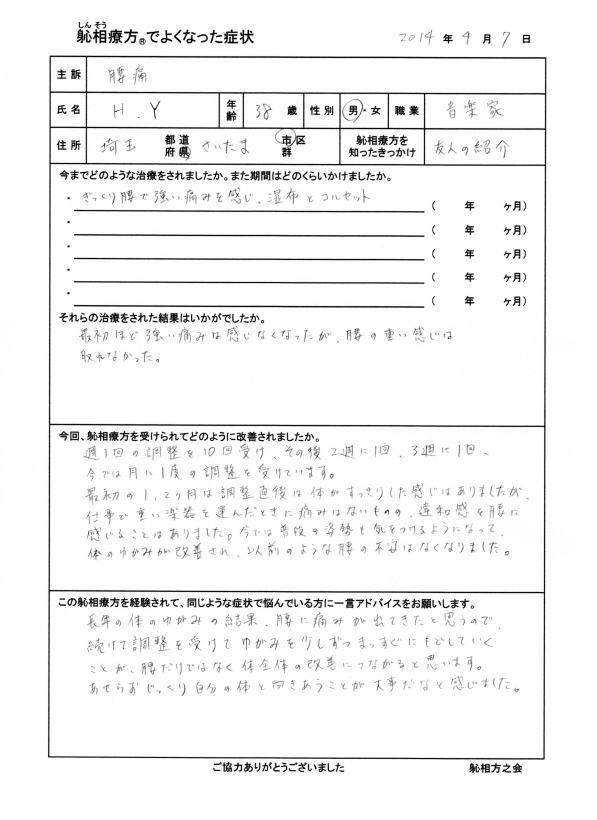 しんそう
躰相療方®でよくなった症状 2014年4月7日
主訴 腰痛
氏名 H.Y 年齢 38歳 性別 男・女 職業 音楽家
住所 埼玉 都道府県 さいたま 市区群 躰相療方を知ったきっかけ 友人の紹介
今までどのような治療をされましたか。また期間はどのくらいかけましたか。
・ぎっくり腰で強い痛みを感じ、湿布とコルセット （ 年 ヶ月）
・ （ 年 ヶ月）
・ （ 年 ヶ月）
・ （ 年 ヶ月）
・ （ 年 ヶ月）
それらの治療をされた結果はいかがでしたか。
最初ほど強い痛みは感じなくなったが、腰の重い感じは
取れなかった。
今回、躰相療方を受けられてどのように改善されましたか。
週1回の調整を10回受け、その後2週に1回、3週に1回、
今では月に1度の調整を受けています。
最初の1,2ヶ月は調整直後は体がすっきりした感じはありましたが、
仕事で重い楽器を運んだときに痛みはないものの、違和感を腰に
感じることはありました。今では普段の姿勢も気をつけるようになって、
体のゆがみが改善され、以前のような腰の不安はなくなりました。
この躰相療方を経験されて、同じような症状で悩んでいる方に一言アドバイスをお願いします。
長年の体のゆがみの結果、腰に痛みが出てきたと思うので、
続けて調整を受けてゆがみを少しずつまっすぐにもどしていく
ことが、腰だけではなく体全体の改善につながると思います。
あせらずじっくり自分の体と向きあうことが大事だなと感じました。
ご協力ありがとうございました 躰相方之会